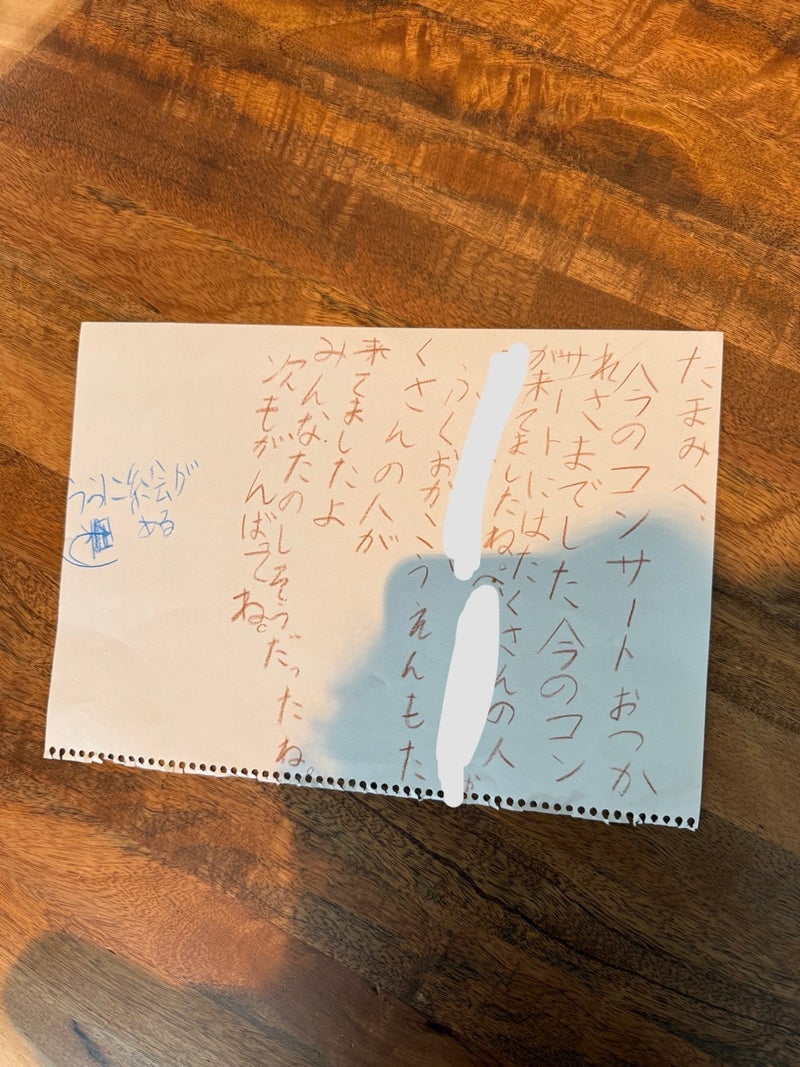 たまみへ、
今のコンサートおつか
れさまでした今のコン
サートにはたくさんの人
が来てましたね。
ふくおかこうえんもた
くさんの人が
来てましたよ
みんなたのしそうだったね。
次もがんばってね。
うらに絵が
ある